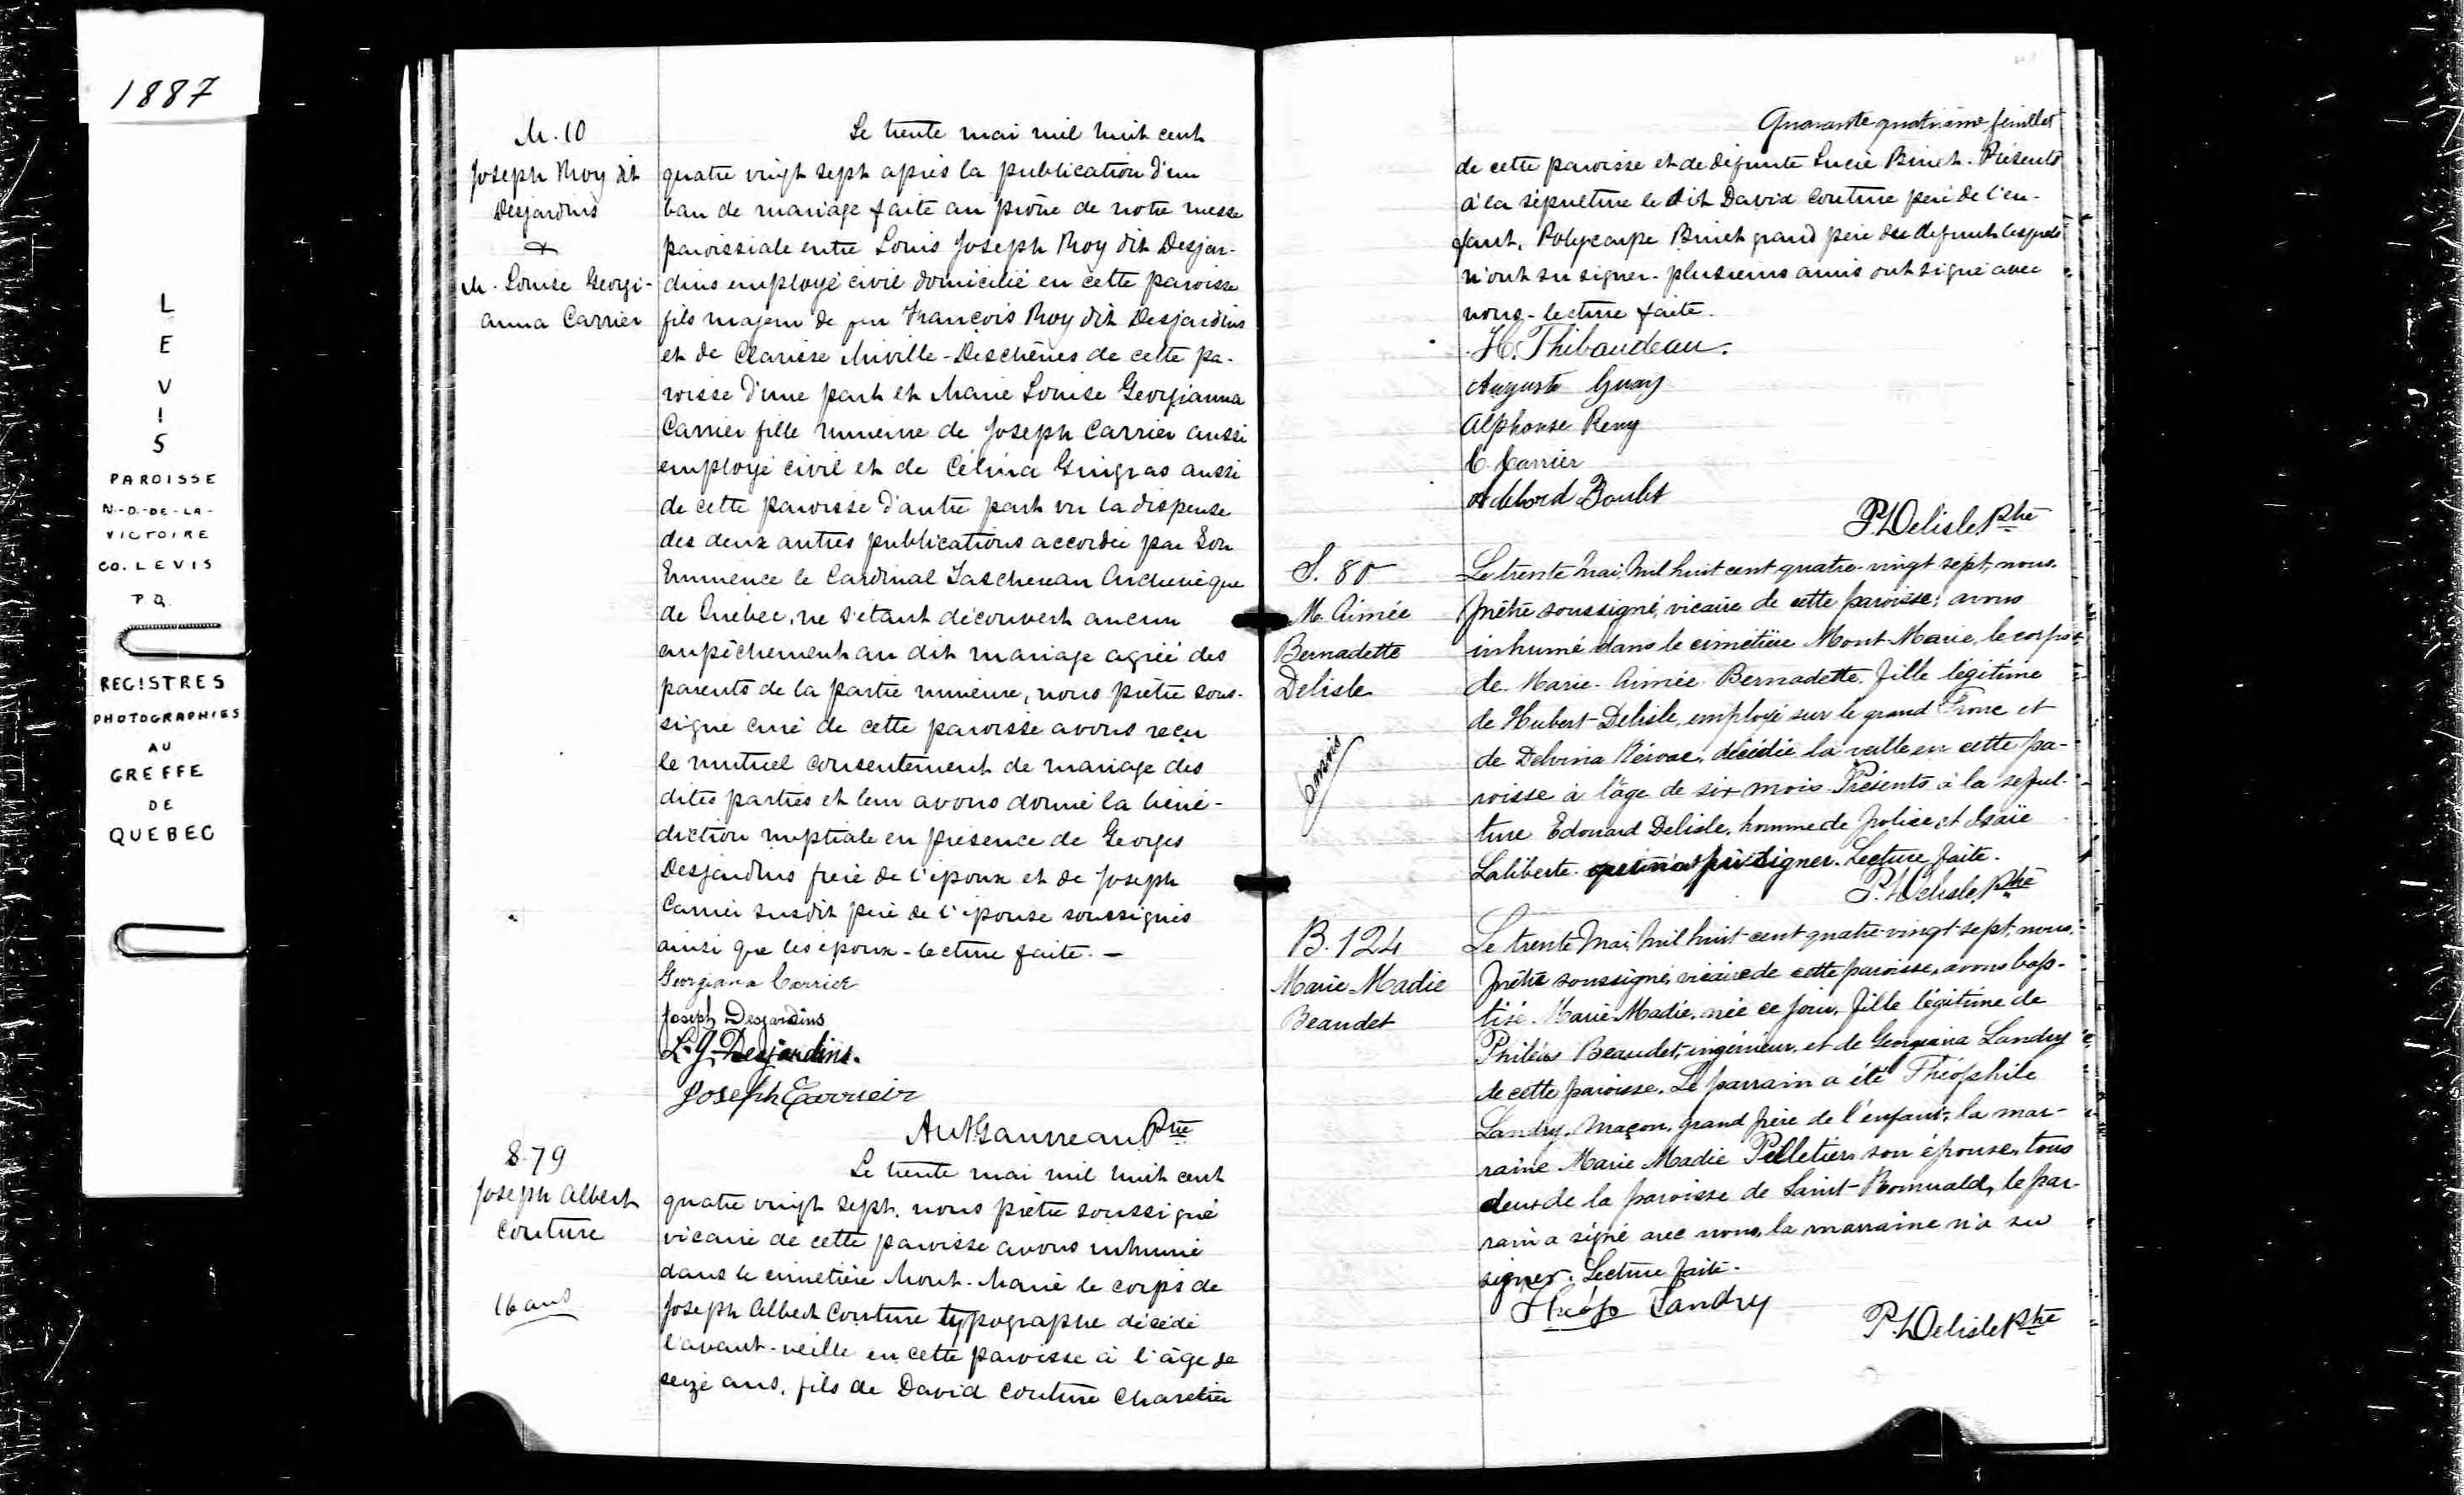 1887
L
E
V
I
S
PAROISSE
N.-D.-DE-LA-
VICTOIRE
CO. LEVIS
P.Q.
REGISTRES
PHOTOGRAPHIES
AU
GREFFE
DE
QUEBEC
M. 10
Joseph Roy dit
Desjardins
&
M. Louise Georgi-
anna Carrier
Le trente mai mil huit cent
quatre vingt sept après la publication d'un
ban de mariage faite au prône de notre messe
paroissiale entre Louis Joseph Roy dit Desjar-
dins employé civil domicilié en cette paroisse
fils majeur de feu François Roy dit Desjardins
et de Clarisse Miville-Deschênes de cette pa-
roisse d'une part et Marie Louise Georgianna
Carrier fille mineure de Joseph Carrier aussi
employé civil et de Célina Gingras aussi
de cette paroisse d'autre part vu la dispense
des deux autres publications accordée par Son
Eminence le Cardinal Taschereau Archevêque
de Québec, ne s'étant découvert aucun
empêchement au dit mariage agréé des
parents de la partie mineure, nous prêtre sous-
signé curé de cette paroisse avons reçu
le mutuel consentement de mariage des
dites parties et leur avons donné la béné-
diction nuptiale en présence de Georges
Desjardins frère de l'époux et de Joseph
Carrier susdit père de l'épouse soussignés
ainsi que les époux - lecture faite. -
Georgiana Carrier
Joseph Desjardins
L. G. Desjardins.
Joseph Carrieir
Ant Gauvreau Ptre
S. 79
Joseph Albert
Couture
16 ans
Le trente mai mil huit cent
quatre vingt sept. nous prêtre soussigné
vicaire de cette paroisse avons inhumé
dans le cimetière Mont-Marie le corps de
Joseph Albert Couture typographe décédé
l'avant-veille en cette paroisse à l'âge de
seize ans, fils de David Couture charetier
Quarante quatrième feuillet
de cette paroisse et de défunte Lucie Binet. Présents
à la sépulture le dit David Couture père de l'en-
fant, Polycarpe Binet grand père du defunt lesquels
n'ont su signer - plusieurs amis ont signé avec
nous - lecture faite.
H. Thibaudeau.
Auguste Guay
Alphonse Remy
C. Carrier
Adelord Boulet
P. Delisle Ptre
S. 80
M. Aimée
Bernadette
Delisle
6 mois
Le trente Mai, Mil huit cent quatre-vingt sept, nous
prêtre soussigné, vicaire de cette paroisse, avons
inhumé dans le cimetière Mont-Marie, le corps
de Marie-Aimée Bernadette, fille légitime
de Hubert Delisle, employé sur le grand Tronc et
de Delvina décédée la veille en cette pa-
roisse à l'âge de six mois. Présents à la sépul-
ture Edouard Delisle, homme de police, et Isaïe
Laliberté signer. Lecture faite.
P. Delisle Ptre
B. 124
Marie Madie
Beaudet
Le trente Mai, Mil huit cent quatre-vingt-sept, nous,
prêtre soussigné, vicaire de cette paroisse, avons bap-
tisé Marie Madie, née ce jour, fille légitime de
Philéas Beaudet, ingénieur, et de Georgiana Landry
de cette paroisse. Le parrain a été Théophile
Landry, Maçon, grand père de l'enfant; la mar-
raine Marie Madie Pelletier son épouse, tous
deux de la paroisse de Saint-Romuald, le par-
rain a signé avec nous, la marraine n'a su
signer. Lecture faite.
Théop Landry
P. Delisle Ptre